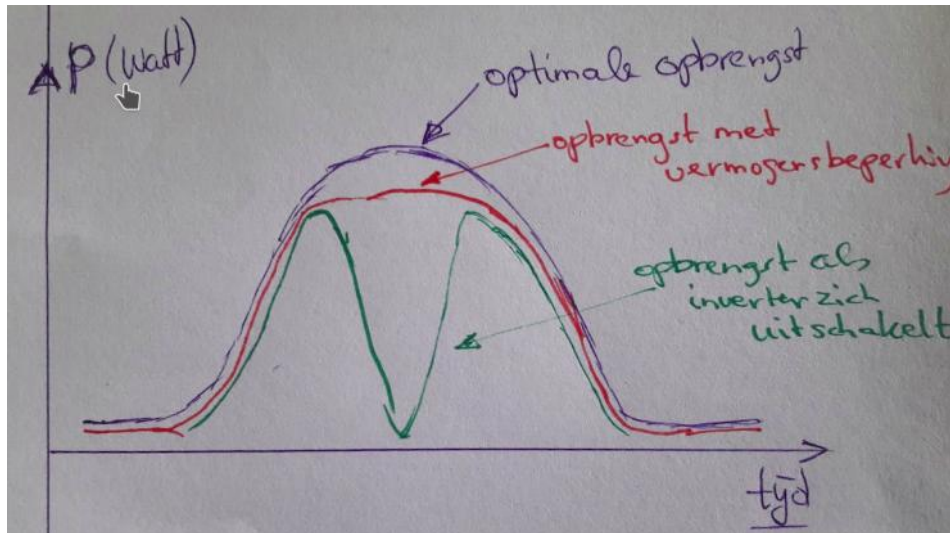 P (Watt)
optimale opbrengst
opbrengst met
vermogensbeperkin
opbrengst als
inverter zich
uitschakelt
tijd